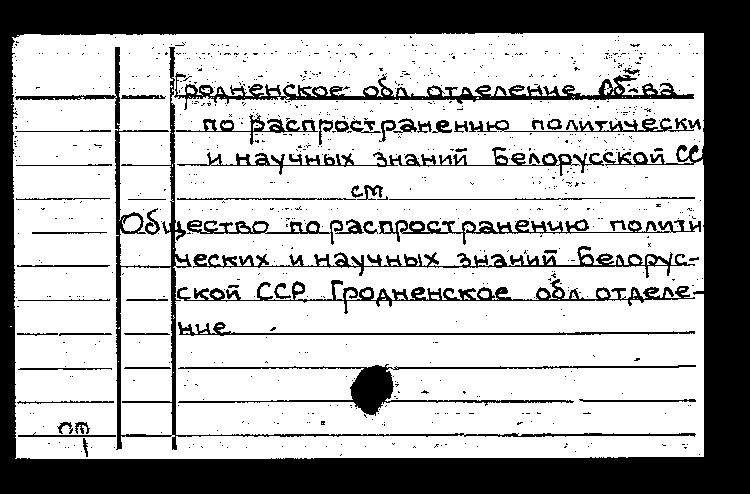 Гродненское обл. отделение Об-ва
по распространению политически
и научных знаний Белорусской СС
см.
Общество по распространению полити-
ческих и научных знаний Белорус-
ской ССР. Гродненское обл. отделе-
ние